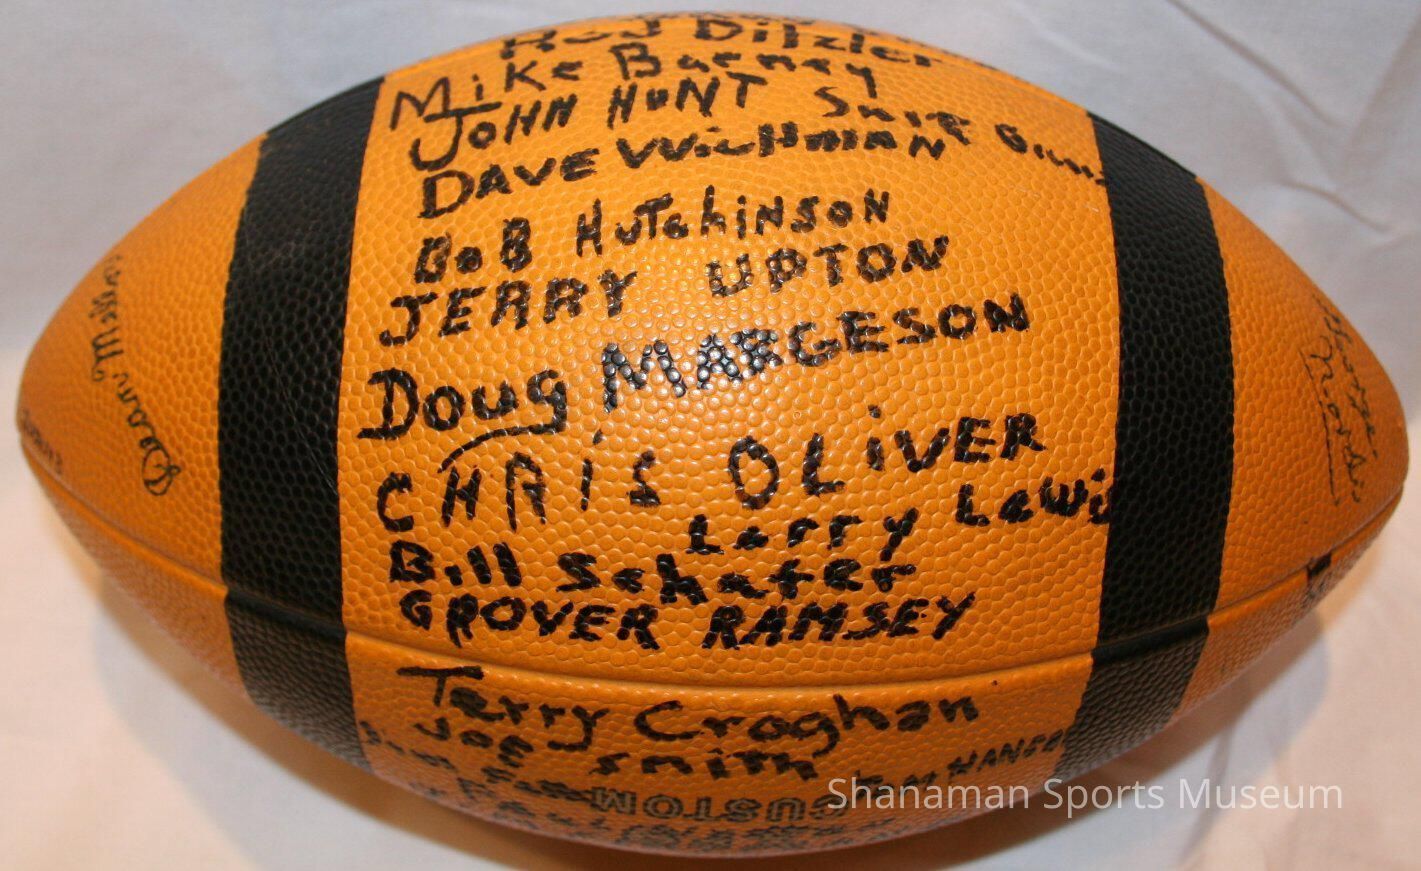 Ditzler
Mike Barney
JOHN HUNT
DAVE WiCHMAN
BoB HuTchiNSoN
JERRY UPTON
Doug MARGESON
CHRiS OLiVER
Larry Lewis
Bill Schafer
GROVER RAMSEY
Terry Croghan
JOE Smith
TOM HANSEN
CUSTOM
Dean
Shanaman Sports Museum